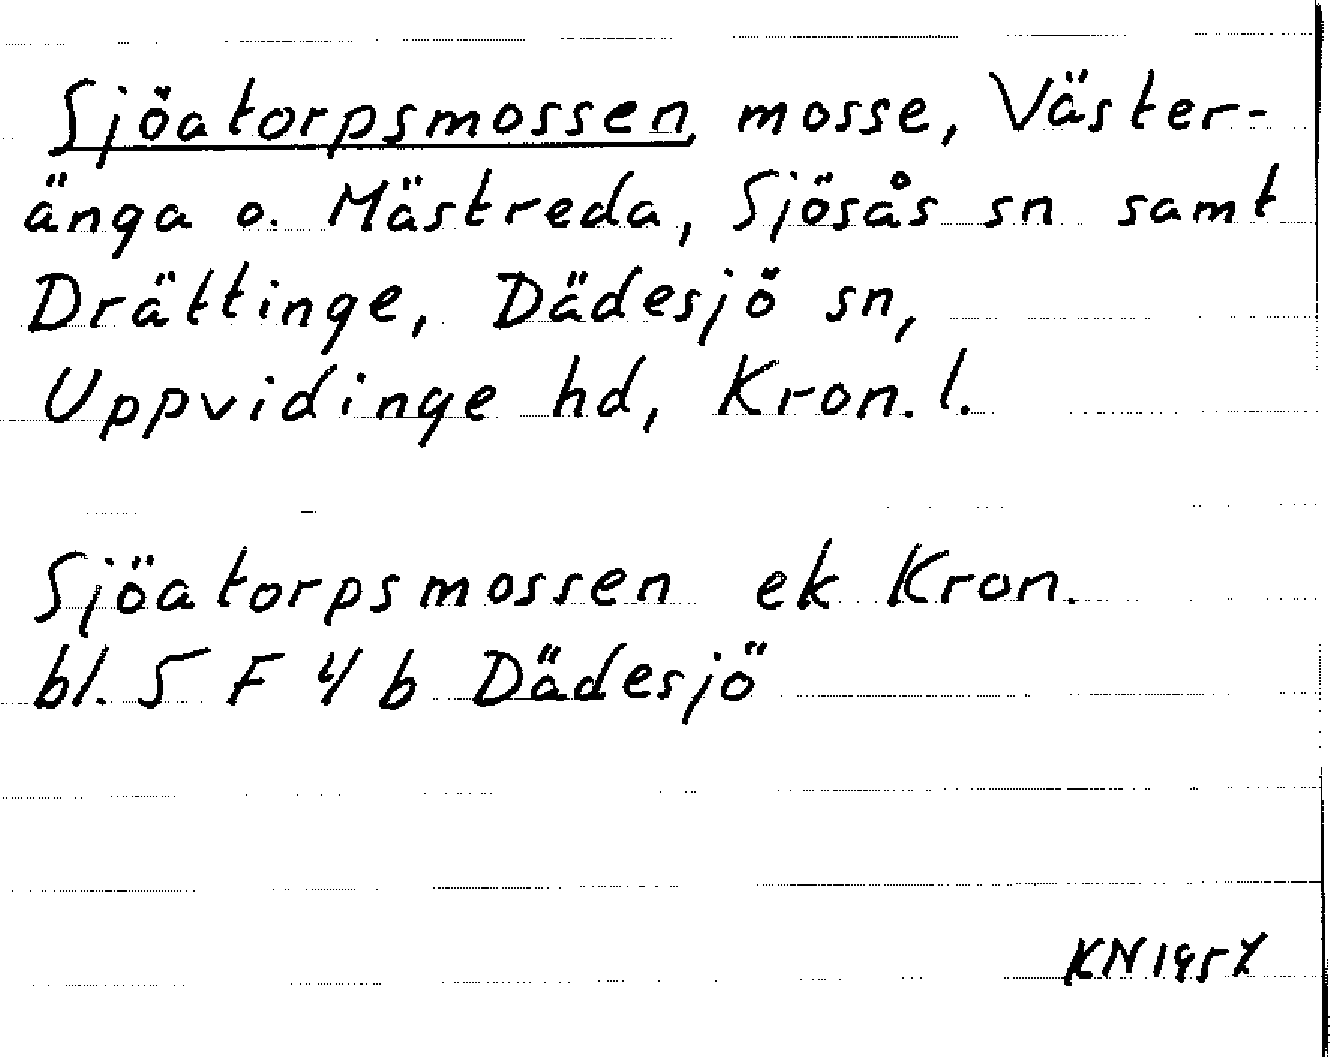 Sjöatorpsmossen, mosse, Väster-
änga o. Mästreda, Sjösås sn samt
Drättinge, Dädesjö sn,
Uppvidinge hd, Kron. l.
Sjöatorpsmossen ek Kron.
bl. 5 F 4 b Dädesjö
KN 1957